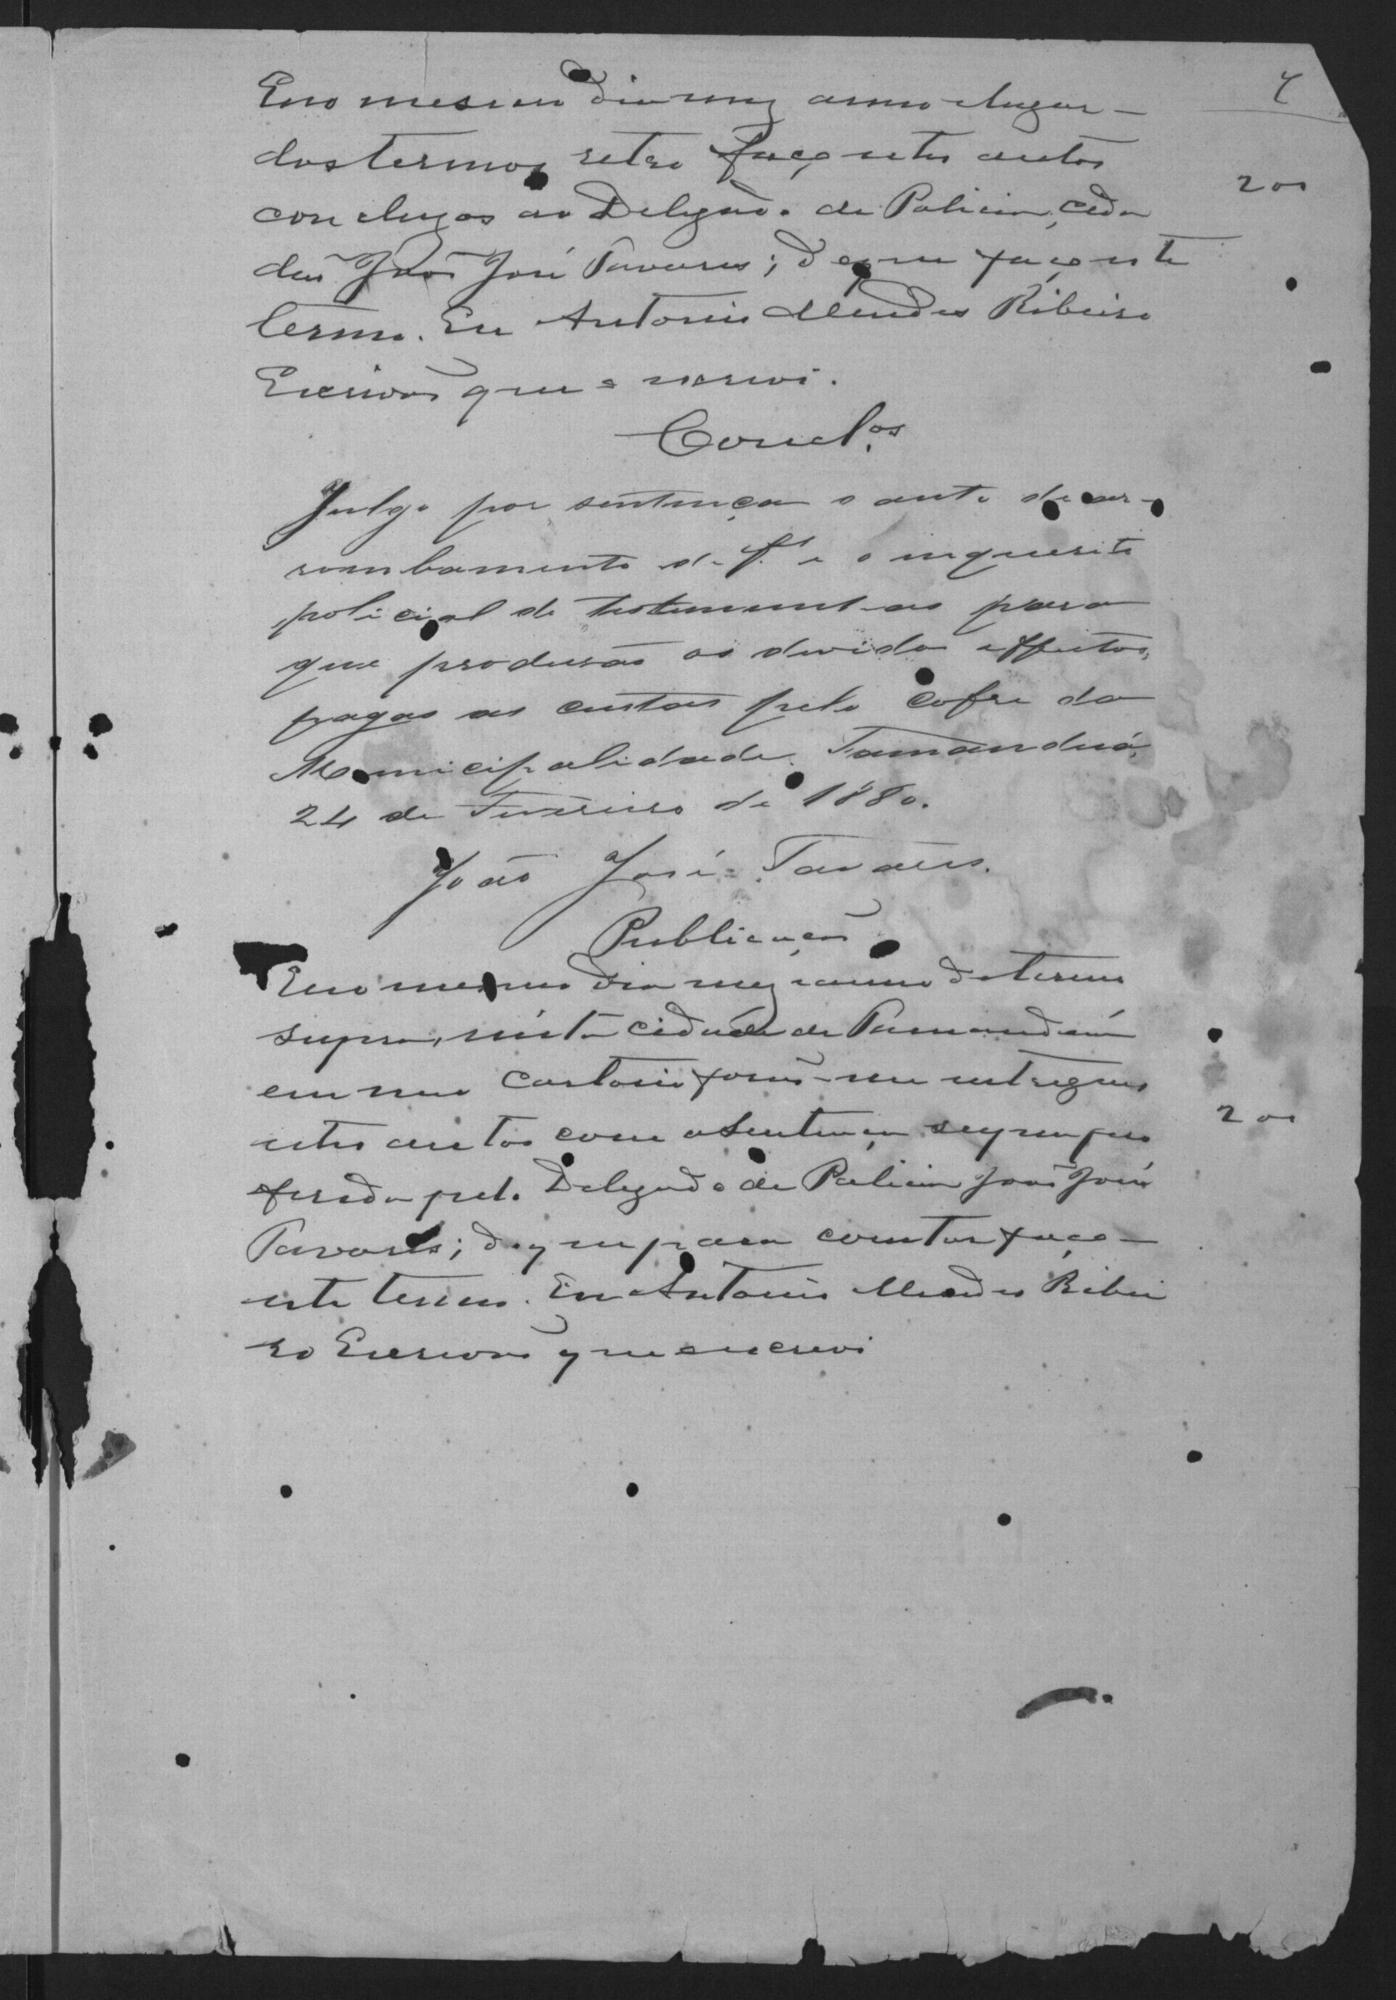 7
Eno mesmo dia mez anno elugar
dos termos retro faço estes autos
200
concluzos ao Delegado de Policia, cida
dão João José Tavares; do que faço este
termo. Eu Antonio Mendes Ribeiro
Escrivão que o escrevi.
Concl.os
Julgo por sentença o auto de ar-
rombamento de f. e o inquerito
policial de testemunhas para
que produsão os devidos effeitos,
pagas as custas pelo cofre da
Municipalidade. Tamanduá,
24 de Fevereiro de 1880.
João José Tavares.
Publicação
Eno mesmo dia mez e anno do termo
supra, nésta cidade de Tamanduá
em meu cartorio forão-me entregues
200
estes autos com a Sentença
ferida pelo Delegado de Policia João José
Tavares; do que para constar faço
este termo. Eu Antonio Mendes Ribei
ro Escrivão que o escrevi